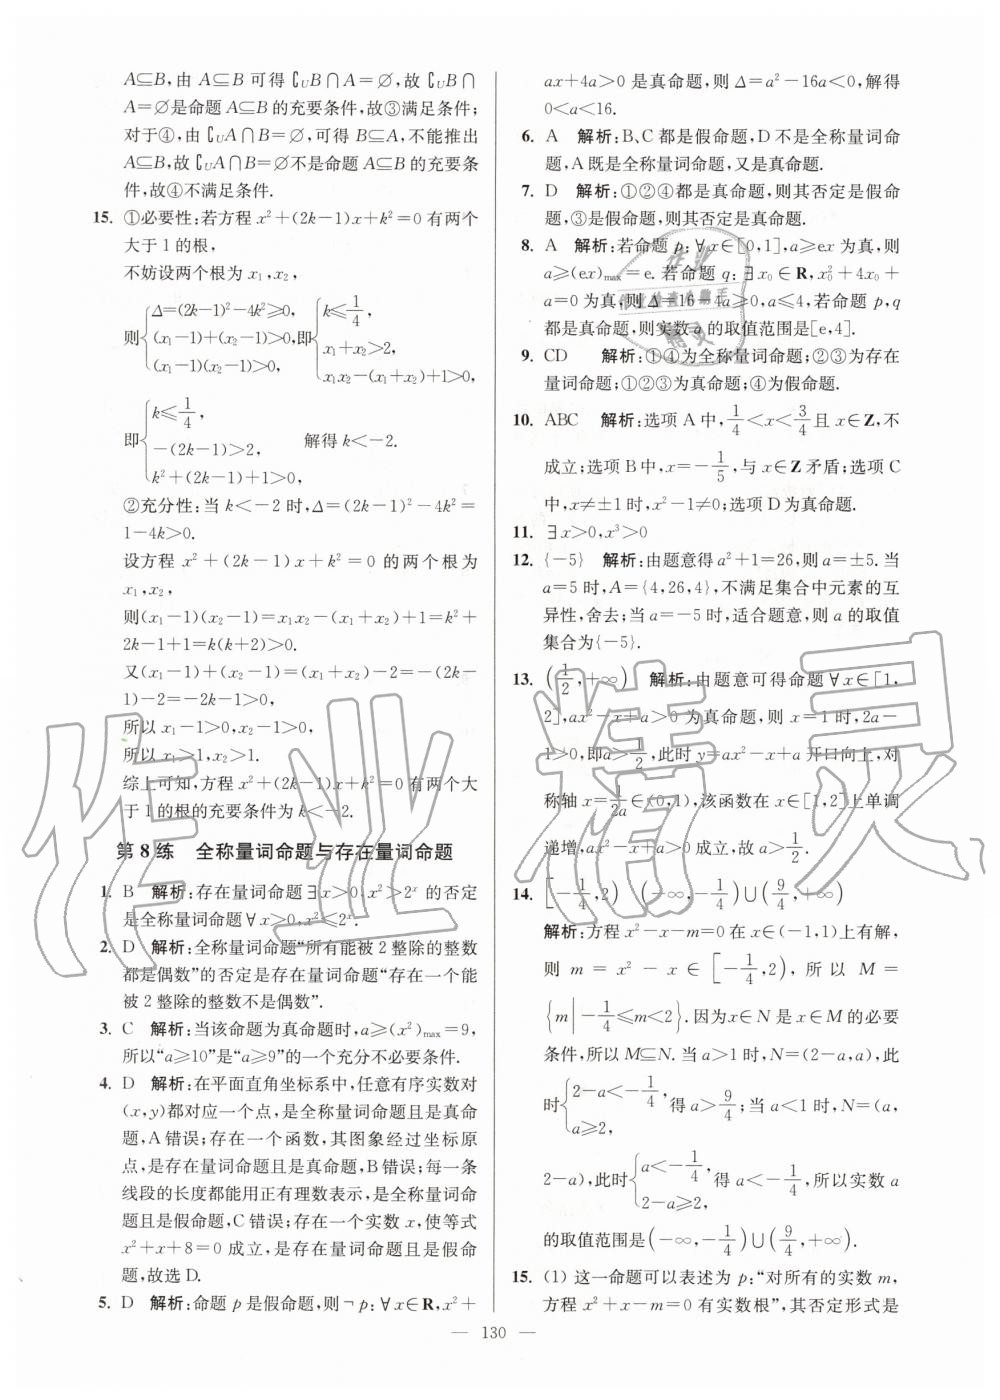 A⊆B,由 A⊆B 可得∁UB∩A=∅,故∁UB∩
A=∅是命题 A⊆B 的充要条件,故③满足条件;
对于④,由∁UA∩B=∅,可得 B⊆A,不能推出
A⊆B,故∁UA∩B=∅不是命题 A⊆B 的充要条
件,故④不满足条件.
15. ①必要性:若方程 x²+(2k-1)x+k²=0 有两个
大于 1 的根,
不妨设两个根为 x₁,x₂,
则{Δ=(2k-1)²-4k²≥0, (x₁-1)+(x₂-1)>0, (x₁-1)(x₂-1)>0, 即{k≤1/4, x₁+x₂>2, x₁x₂-(x₁+x₂)+1>0,
即{k≤1/4, -(2k-1)>2, k²+(2k-1)+1>0, 解得 k<-2.
②充分性:当 k<-2 时,Δ=(2k-1)²-4k²=
1-4k>0.
设方程 x²+(2k-1)x+k²=0 的两个根为
x₁,x₂,
则(x₁-1)(x₂-1)=x₁x₂-(x₁+x₂)+1=k²+
2k-1+1=k(k+2)>0.
又(x₁-1)+(x₂-1)=(x₁+x₂)-2=-(2k-
1)-2=-2k-1>0,
所以 x₁-1>0,x₂-1>0.
所以 x₁>1,x₂>1.
综上可知,方程 x²+(2k-1)x+k²=0 有两个大
于 1 的根的充要条件为 k<-2.
第 8 练 全称量词命题与存在量词命题
1. B 解析:存在量词命题∃x>0,x²>2ˣ 的否定
是全称量词命题∀x>0,x²≤2ˣ.
2. D 解析:全称量词命题“所有能被 2 整除的整数
都是偶数”的否定是存在量词命题“存在一个能
被 2 整除的整数不是偶数”.
3. C 解析:当该命题为真命题时,a≥(x²)max=9,
所以“a≥10”是“a≥9”的一个充分不必要条件.
4. D 解析:在平面直角坐标系中,任意有序实数对
(x,y)都对应一个点,是全称量词命题且是真命
题,A 错误;存在一个函数,其图象经过坐标原
点,是存在量词命题且是真命题,B 错误;每一条
线段的长度都能用正有理数表示,是全称量词命
题且是假命题,C 错误;存在一个实数 x,使等式
x²+x+8=0 成立,是存在量词命题且是假命
题,故选 D.
5. D 解析:命题 p 是假命题,则¬p:∀x∈R,x²+
ax+4a>0 是真命题,则 Δ=a²-16a<0,解得
0<a<16.
6. A 解析:B、C 都是假命题,D 不是全称量词命
题,A 既是全称量词命题,又是真命题.
7. D 解析:①②④都是真命题,则其否定是假命
题,③是假命题,则其否定是真命题.
8. A 解析:若命题 p:∀x∈[0,1],a≥ex 为真,则
a≥(ex)max=e. 若命题 q:∃x₀∈R,x₀²+4x₀+
a=0 为真,则 Δ=16-4a≥0,a≤4,若命题 p,q
都是真命题,则实数 a 的取值范围是[e,4].
9. CD 解析:①④为全称量词命题;②③为存在
量词命题;①②③为真命题;④为假命题.
10. ABC 解析:选项 A 中,1/4<x<3/4且 x∈Z,不
成立;选项 B 中,x=-1/5,与 x∈Z 矛盾;选项 C
中,x≠±1 时,x²-1≠0;选项 D 为真命题.
11. ∃x>0,x³>0
12. {-5} 解析:由题意得 a²+1=26,则 a=±5. 当
a=5 时,A={4,26,4},不满足集合中元素的互
异性,舍去;当 a=-5 时,适合题意,则 a 的取值
集合为{-5}.
13. (1/2,+∞) 解析:由题意可得命题∀x∈[1,
2],ax²-x+a>0 为真命题,则 x=1 时,2a-
1>0,即a>1/2,此时 y=ax²-x+a 开口向上,对
称轴 x=1/2a∈(0,1),该函数在 x∈[1,2]上单调
递增,ax²-x+a>0 成立,故 a>1/2.
14. [-1/4,2) (-∞,-1/4)∪(9/4,+∞)
解析:方程 x²-x-m=0 在 x∈(-1,1)上有解,
则 m=x²-x∈[-1/4,2),所以 M=
{m|-1/4≤m<2}.因为x∈N 是 x∈M 的必要
条件,所以 M⊆N. 当 a>1 时,N=(2-a,a),此
时{2-a<-1/4, a≥2, 得 a>9/4;当 a<1 时,N=(a,
2-a),此时{a<-1/4, 2-a≥2, 得 a<-1/4,所以实数 a
的取值范围是(-∞,-1/4)∪(9/4,+∞).
15. (1) 这一命题可以表述为 p:“对所有的实数 m,
方程 x²+x-m=0 有实数根”,其否定形式是
— 130 —
作业精灵